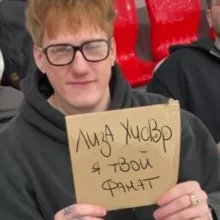 Лиза Хмовр
я твой
фанат